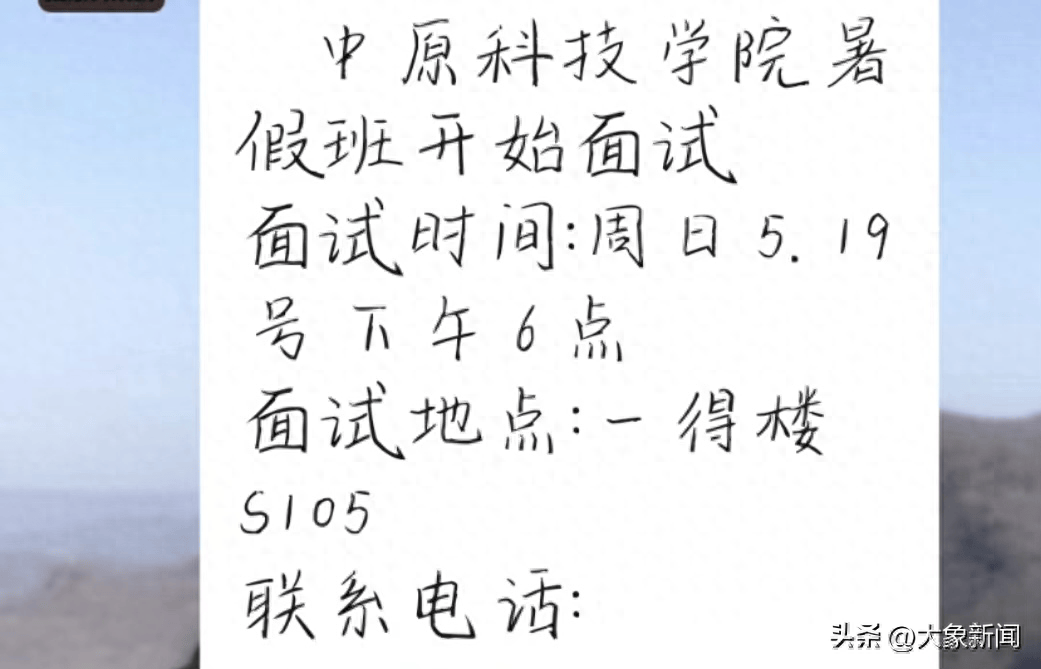 中原科技学院暑
假班开始面试
面试时间:周日5.19
号下午6点
面试地点:一得楼
S105
联系电话:
头条 @大象新闻